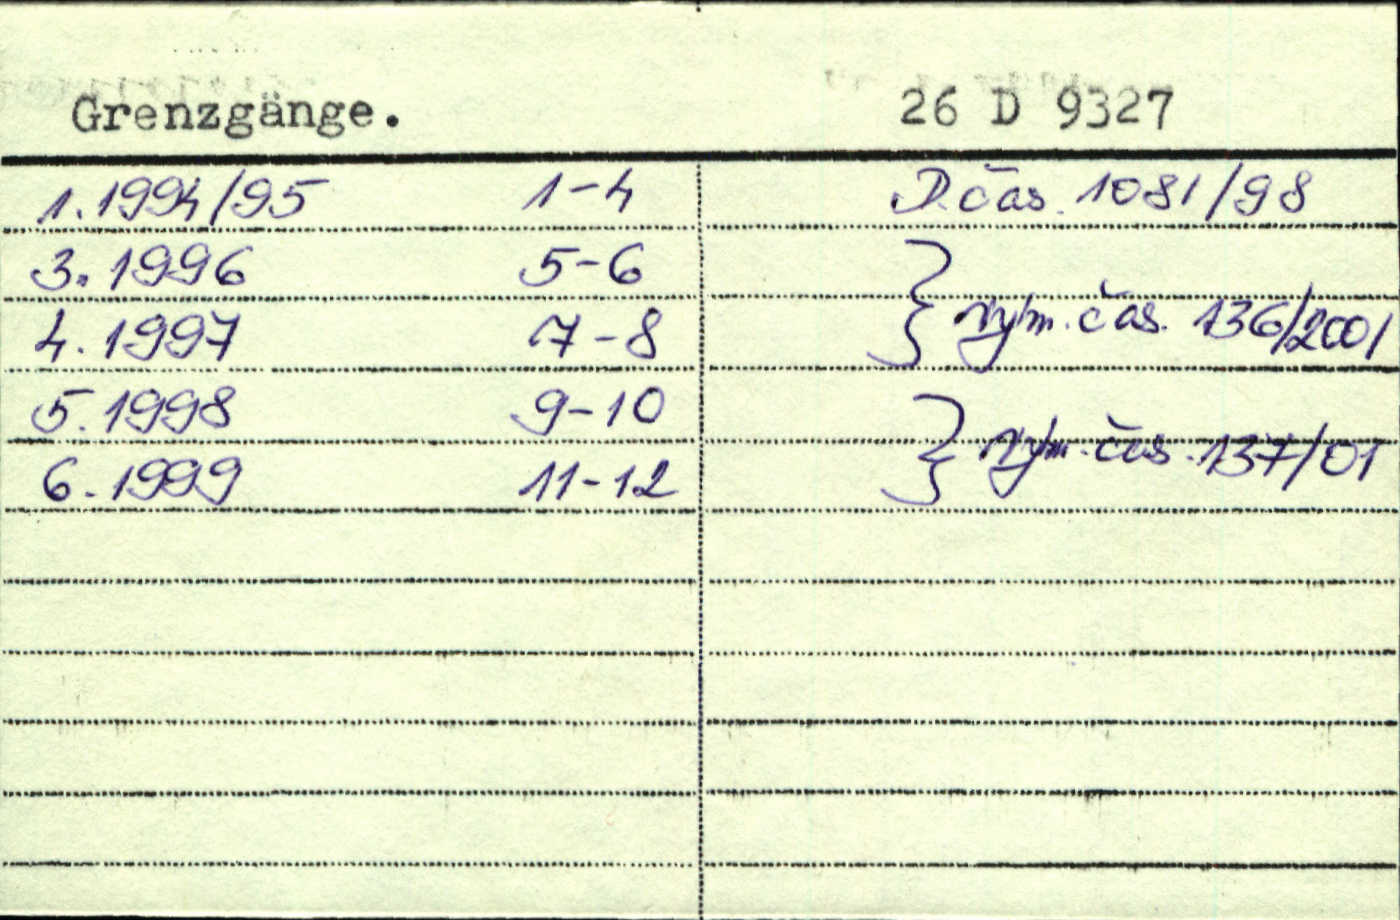 Grenzgänge. 26 D 9327
1. 1994/95 1-4 D.čas. 1081/98
3. 1996 5-6
4. 1997 7-8 } vým. čas. 136/2001
5. 1998 9-10
6. 1999 11-12 } vým. čas. 137/01